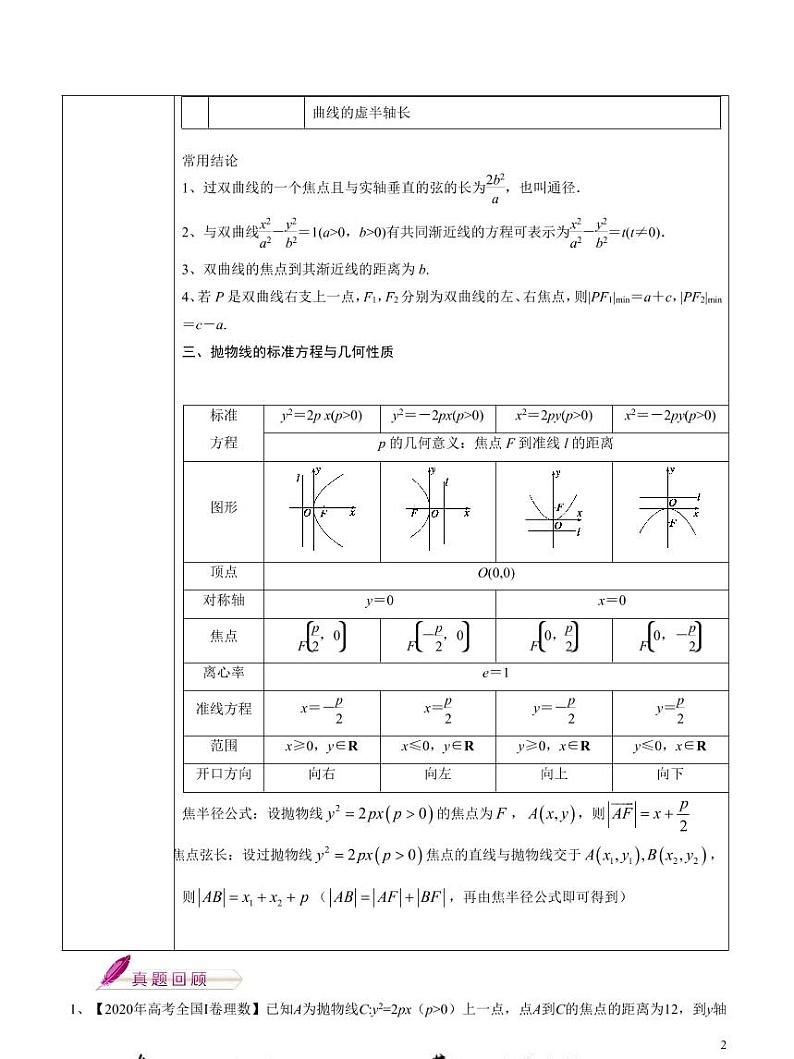 曲线的虚半轴长
常用结论
1、过双曲线的一个焦点且与实轴垂直的弦的长为2b²/a，也叫通径.
2、与双曲线x²/a²－y²/b²＝1(a>0，b>0)有共同渐近线的方程可表示为x²/a²－y²/b²＝t(t≠0).
3、双曲线的焦点到其渐近线的距离为 b.
4、若 P 是双曲线右支上一点，F₁，F₂ 分别为双曲线的左、右焦点，则|PF₁|min＝a＋c，|PF₂|min
＝c－a.
三、抛物线的标准方程与几何性质
标准方程 y²＝2p x(p>0) y²＝－2px(p>0) x²＝2py(p>0) x²＝－2py(p>0)
p 的几何意义：焦点 F 到准线 l 的距离
图形 l y O F x F y l O x y F O x l y l O x F
顶点 O(0,0)
对称轴 y＝0 x＝0
焦点 F(p/2，0) F(－p/2，0) F(0，p/2) F(0，－p/2)
离心率 e＝1
准线方程 x＝－p/2 x＝p/2 y＝－p/2 y＝p/2
范围 x≥0，y∈R x≤0，y∈R y≥0，x∈R y≤0，x∈R
开口方向 向右 向左 向上 向下
焦半径公式：设抛物线 y² = 2px(p > 0) 的焦点为 F ， A(x, y)，则 |AF| = x + p/2
焦点弦长：设过抛物线 y² = 2px(p > 0) 焦点的直线与抛物线交于 A(x₁, y₁), B(x₂, y₂)，
则 |AB| = x₁ + x₂ + p （ |AB| = |AF| + |BF| ，再由焦半径公式即可得到）
真题回顾
1、【2020年高考全国Ⅰ卷理数】已知A为抛物线C:y²=2px（p>0）上一点，点A到C的焦点的距离为12，到y轴
2